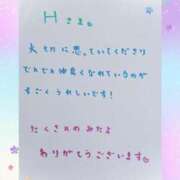 Hさま。
大切に思っていてくださり
どんどん仲良くなれているのが
すごくうれしいです!
たくさんのみたよ
ありがとうございます。